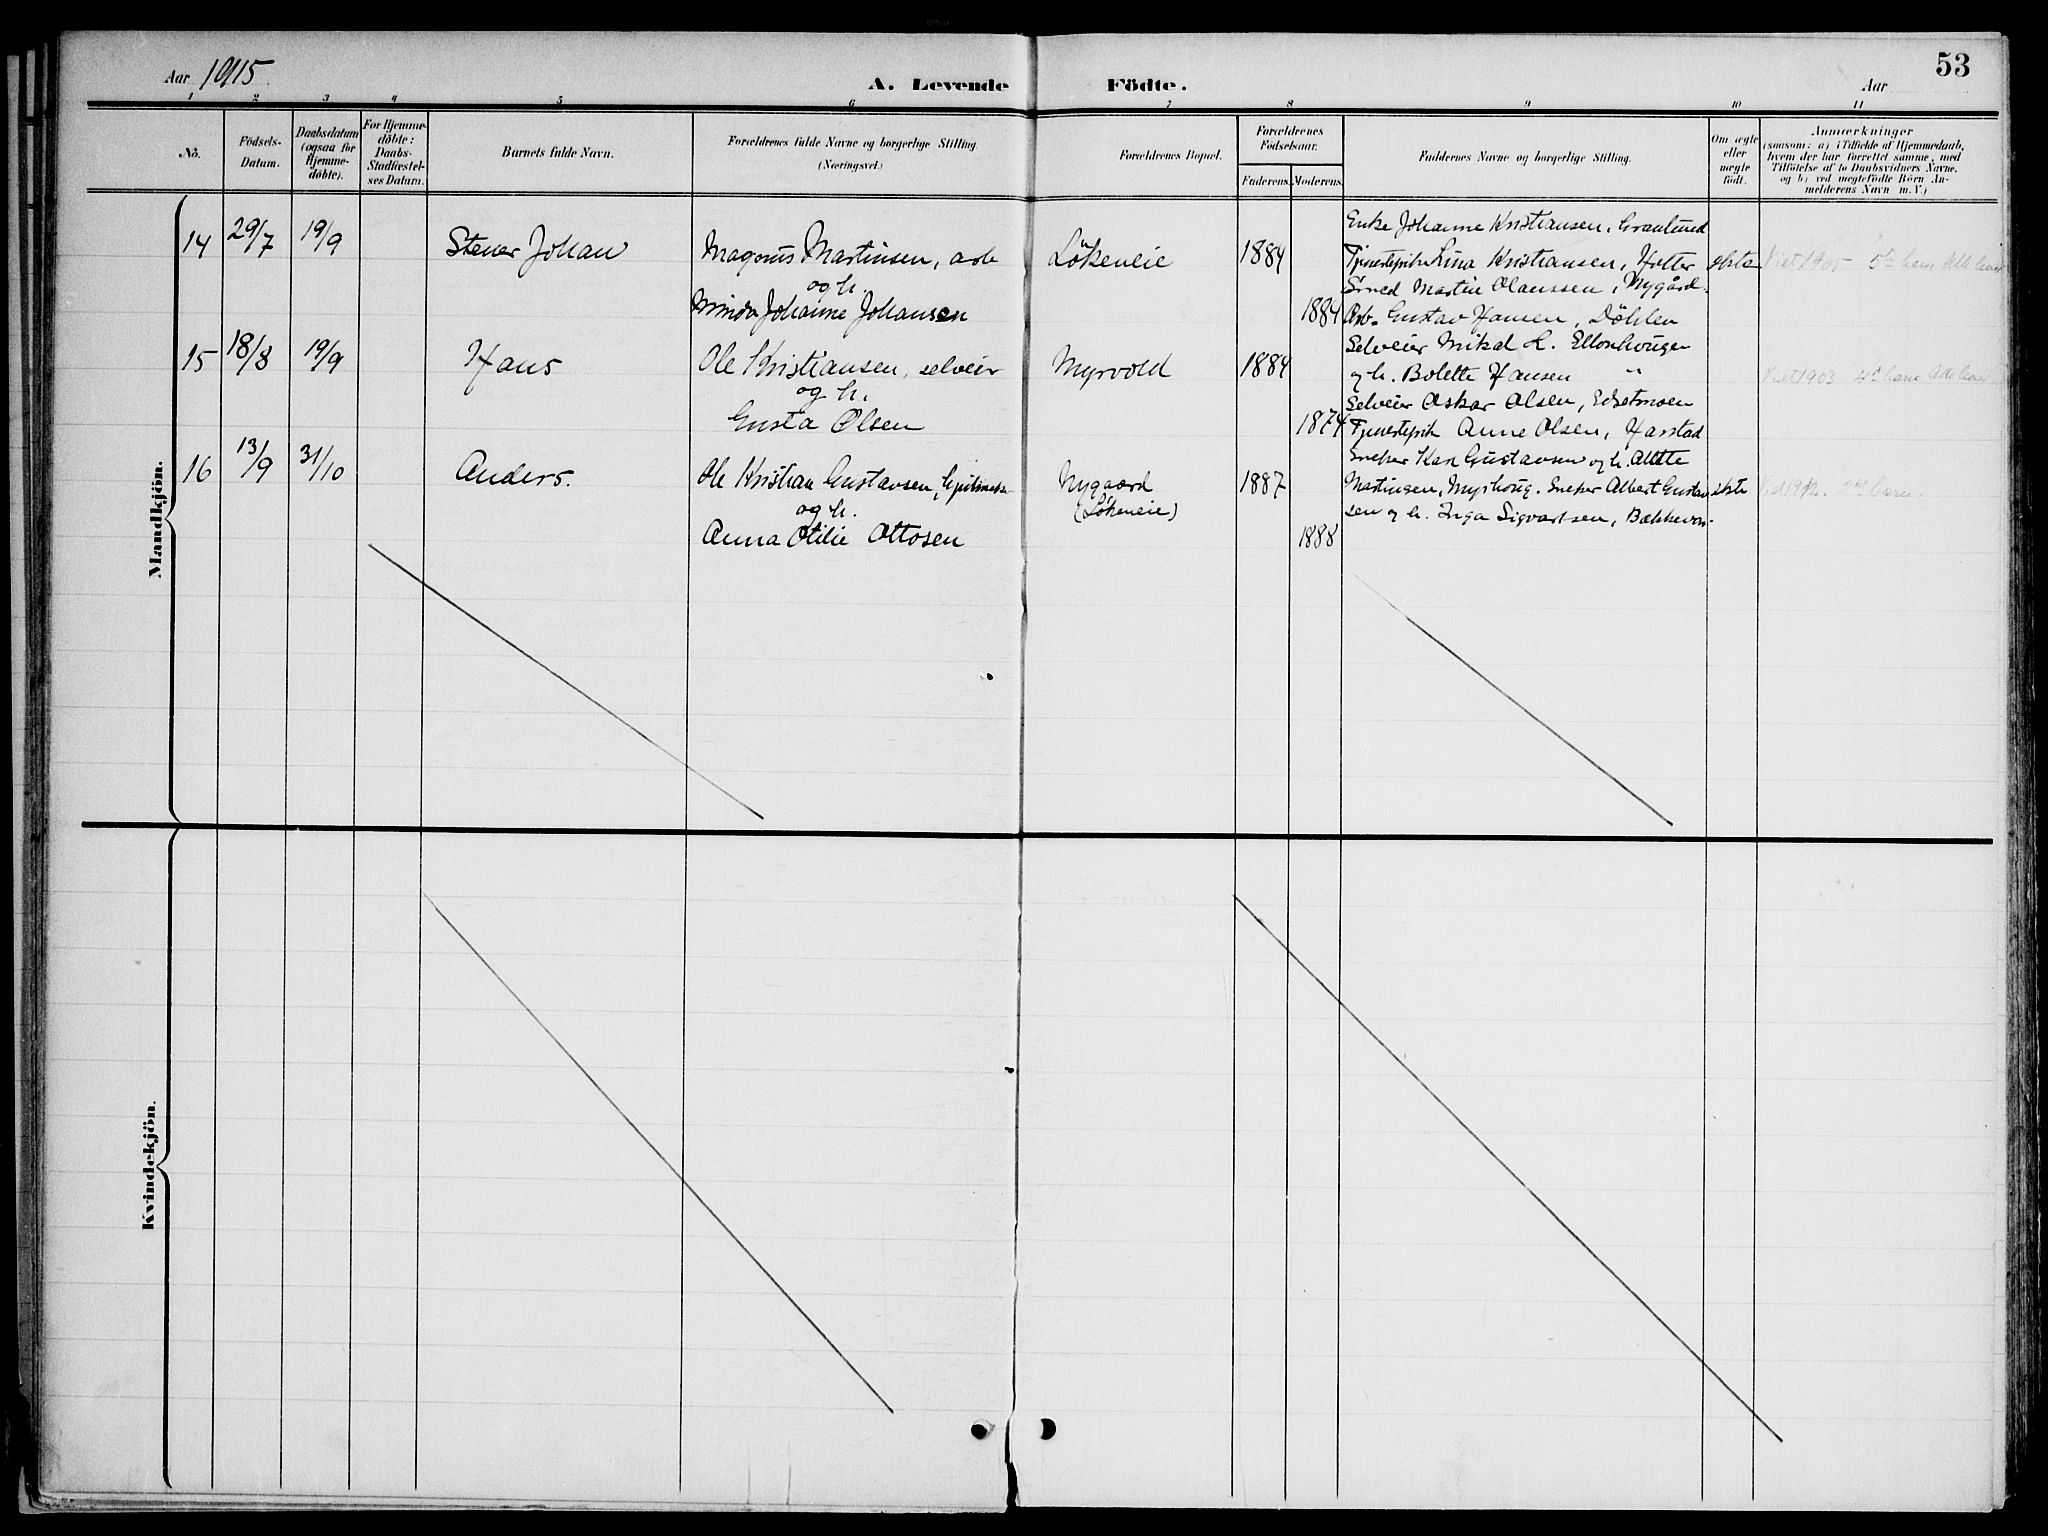 53
Aar 1915
A. Levende Födte.
Aar
1 2 3 4 5 6 7 8 9 10 11
No.
Födsels-
Datum.
Daabsdatum
(ogsaa for
Hjemme-
döbte).
For Hjemme-
döbte:
Daabs-
Stadfæstel-
ses Datum.
Barnets fulde Navn.
Forældrenes fulde Navne og borgerlige Stilling.
(Næringsvei.)
Forældrenes Bopæl.
Forældrenes
Födselsaar.
Faderens.
Moderens.
Faddernes Navne og borgerlige Stilling.
Om ægte
eller
uægte
födt.
Anmærkninger
(saasom: a) i Tilfælde af Hjemmedaab,
hvem der har forrettet samme, med
Tilföielse af to Daabsvidners Navne,
og b) ved uægtefödte Börn An-
melderens Navn m. V.)
Mandkjön.
14 29/7 19/9 Stener Johan
Magnus Martinsen, arb
og h.
Minda Johanne Johansen
Lökeneie
1884
1884
Enke Johanne Kristiansen, Granlund
Tjenestepike Lina Kristiansen, Holter
Smed Martin Olaussen, Nygård.
Arb. Gustav Hansen, Döhlen
ekte
Viet 1905 5te barn Alle lever
15 18/8 19/9 Hans
Ole Kristiansen, selveier
og h.
Gusta Olsen
Myrvold
1884
1874
Selveier Mikal L.
og h. Bolette Hansen "
Selveier Oskar Olsen,
Tjenestepik Anne Olsen, Harstad
Viet 1903 4de barn Alle lever
16 13/9 31/10 Anders.
Ole Kristian Gustavsen,
og h.
Anna Otilie Ottosen
Nygaard
(Lökeneie)
1887
1888
Sneker Karl Gustavsen og h.
Martinsen, Myrhoug. Sneker Albert Gustav
sen og h. Inga Sigvartsen,
ekte
2det barn.
Kvindekjön.